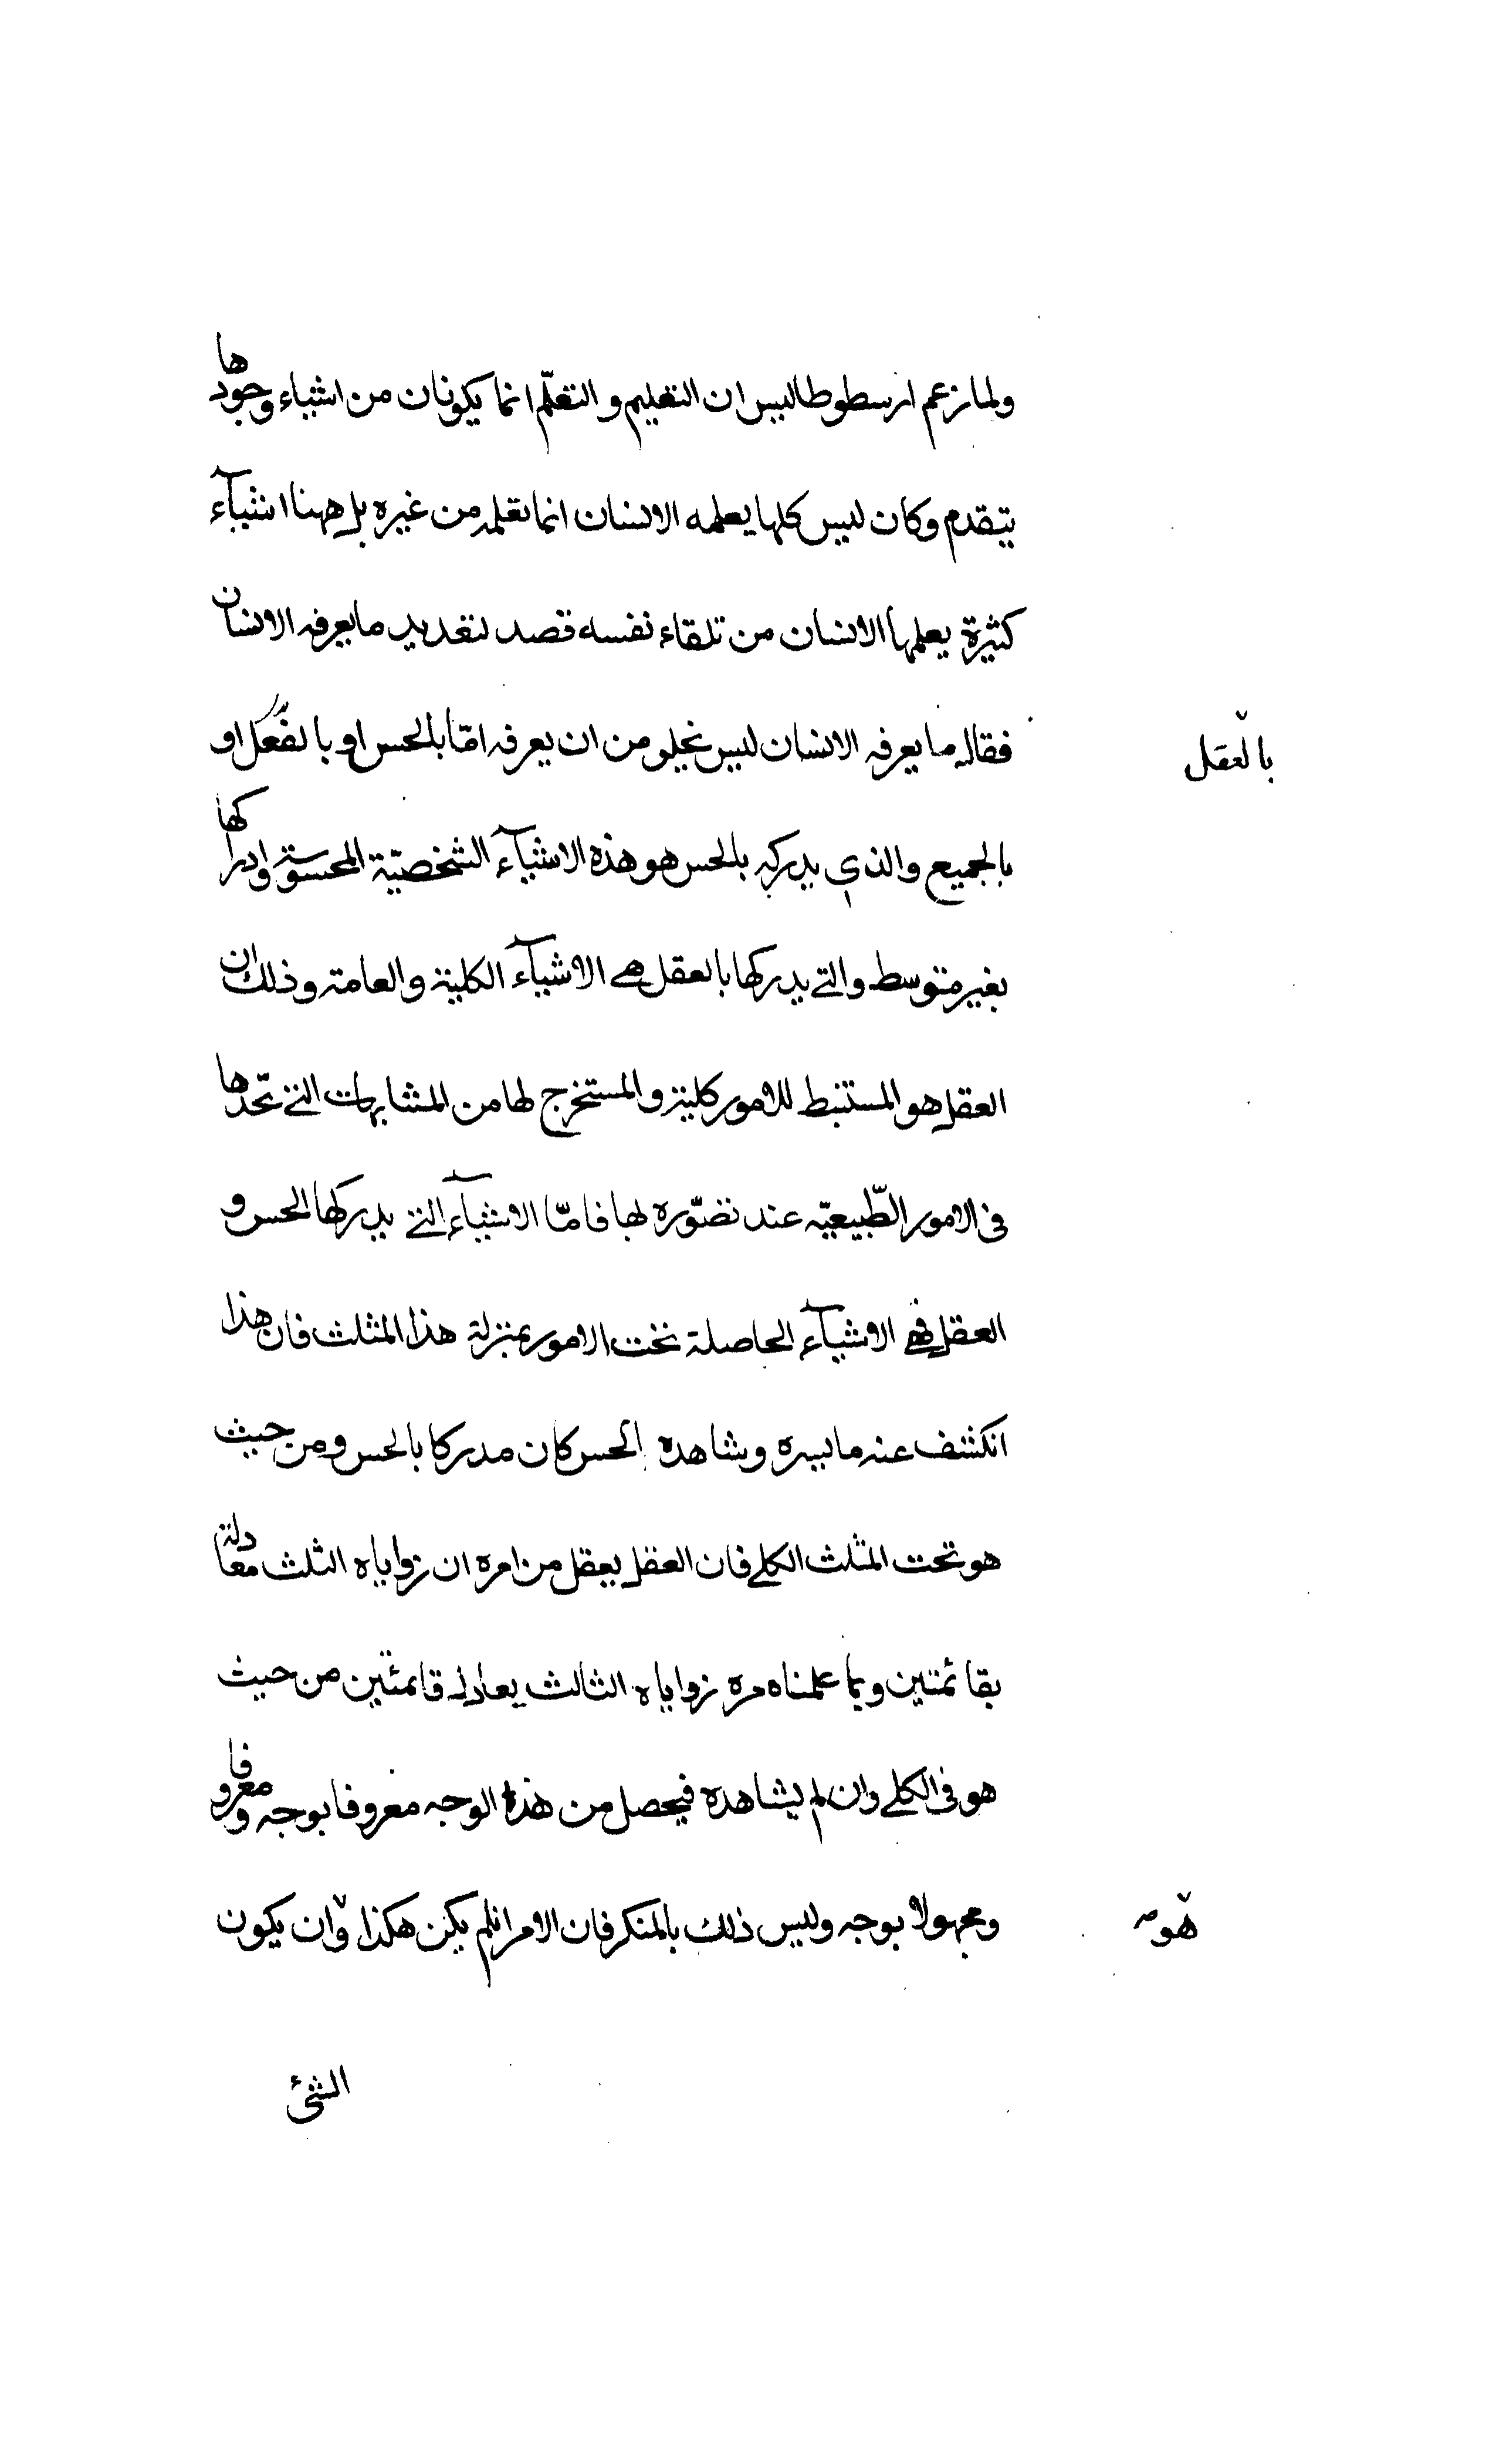 ولما زعم ارسطوطاليس ان التعليم و التعلّم انما يكونان من اشياء وجودها
يتقدم وكان ليس كلها يعلمه الانسان انما تعلمه من غيره بل ههنا اشيآء
كثيرة يعلمها الانسان من تلقاء نفسه قصد لتعديد ما يعرفه الانسان
فقال ما يعرفه الانسان ليس يخلو من ان يعرفه امّا بالحس او بالفعل او
بالعقل
بالجميع والذي يدركه بالحس هو هذه الاشيآء الشخصيّة المحسوسة وادراكها
بغير متوسط والتي يدركها بالعقل هي الاشيآء الكلية والعامة وذلك ان
العقل هو المستنبط للامور كلية والمستخرج لها من المشابهات التي تحدها
في الامور الطّبيعيّه عند تصوّره لها فامّا الاشيآء التي يدركها الحس و
العقل فهي الاشيآء الحاصلة تحت الامور بمنزلة هذا المثلث فان هذا
انكشف عنه ما يسره وشاهده الحس كان مدركا بالحس ومن حيث
هو تحت المثلث الكلي فان العقل يعقل من امره ان زواياه الثلث معادلة
بقائمتين وبما علمناه مره زواياه الثالث يعادل قائمتين من حيث
هو في الكلي وان لم يشاهده فيحصل من هذا الوجه معروفا بوجه ومعروفا
ومجهولا بوجه وليس ذلك بالمنكر فان الامر انلم يكن هكذا وان يكون
هو
الشئ